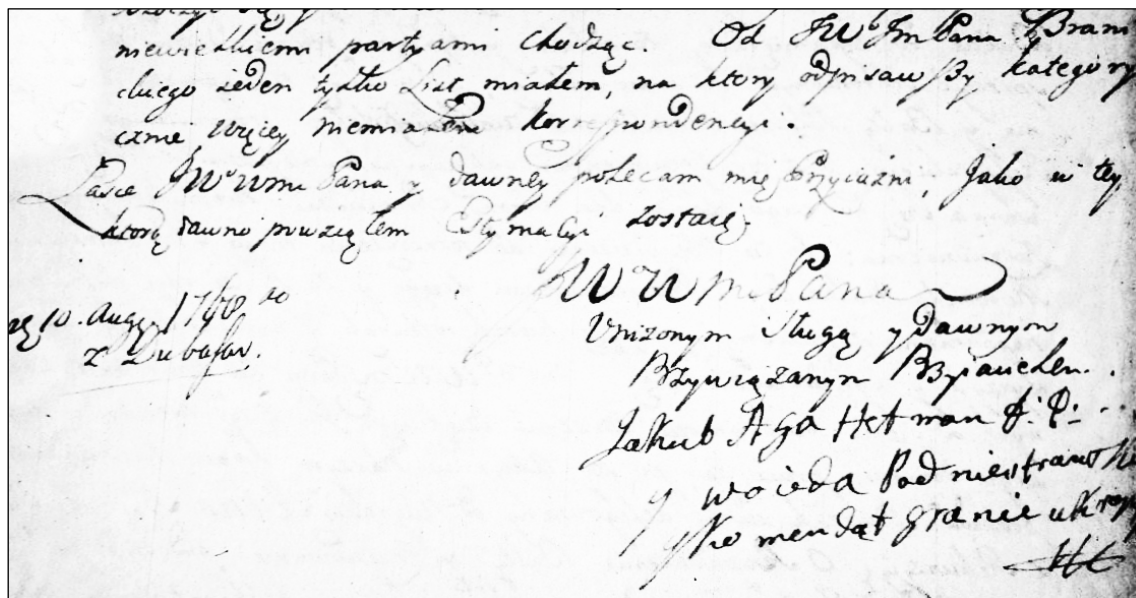 niewielkiemi partyami chodząc. Od JW Jm Pana Brani
ckiego ieden tylko List miałem, na ktory odpisawszy kategory
cznie więcey niemiałem korrespondencyi.
Łasce JWWM Pana y dawney polecam mię Przyiaźni, Jako w tey
ktorą dawno powziąłem Estymacyi zostaię
JWWM Pana
10. Aug. 1768
z Dubasar.
Uniżonym sługą y dawnym
Przywiązanym Przyiacielem
Jakub Aga Hetman
y woieda Podniestrans
y Komendąt granic ukrop